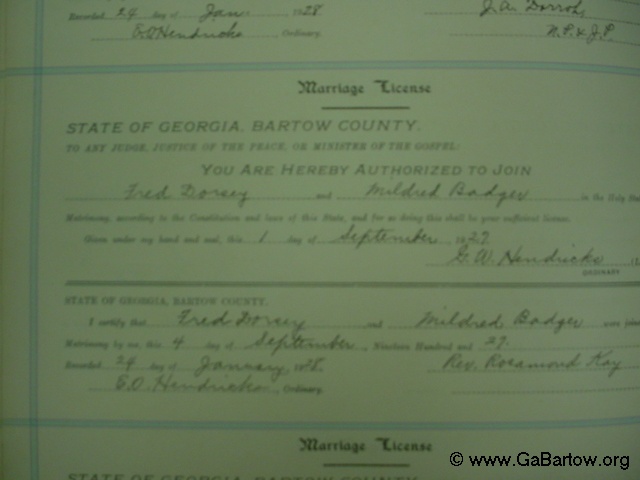 Recorded 24 day of Jan. 1928 J. A. Dorroh,
G. W. Hendricks, Ordinary. N.P. & J.P.
Marriage License
STATE OF GEORGIA, BARTOW COUNTY.
TO ANY JUDGE, JUSTICE OF THE PEACE, OR MINISTER OF THE GOSPEL:
YOU ARE HEREBY AUTHORIZED TO JOIN
Fred Dorsey and Mildred Badger in the Holy Sta
Matrimony, according to the Constitution and laws of this State, and for so doing this shall be your sufficient license.
Given under my hand and seal, this 1 day of September 1927
G. W. Hendricks (L
ORDINARY
STATE OF GEORGIA, BARTOW COUNTY.
I certify that Fred Dorsey and Mildred Badger were join
Matrimony by me, this 4 day of September, Nineteen Hundred and 27.
Recorded 24 day of January, 1928. Rev. Rosamond Kay
G. W. Hendricks, Ordinary.
Marriage License
STATE OF GEORGIA, BARTOW COUNTY
© www.GaBartow.org